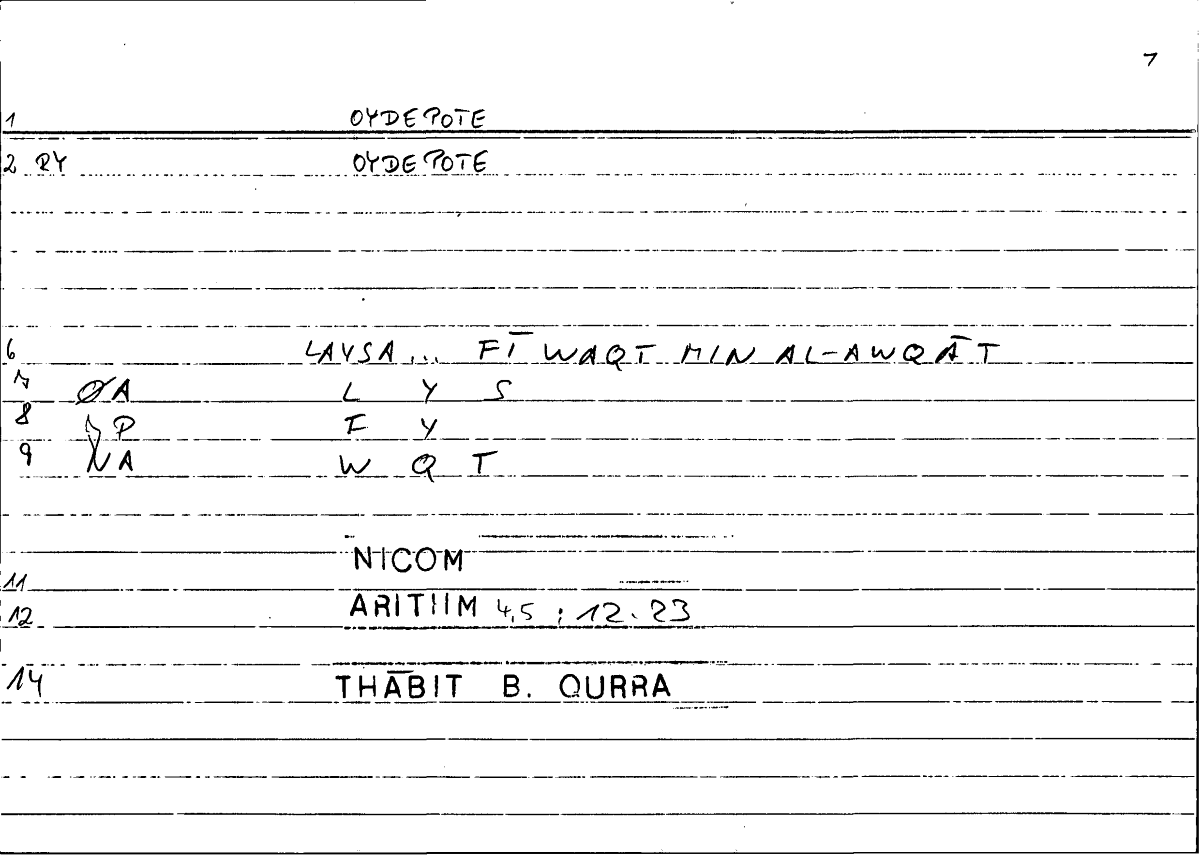 7
1 OYDEPOTE
2 RY OYDEPOTE
6 LAYSA... FĪ WAQT MIN AL-AWQĀT
7 ØA L Y S
8 P F Y
9 NA W Q T
NICOM
11
12 ARITHM 4,5 ; 12.23
14 THĀBIT B. QURRA